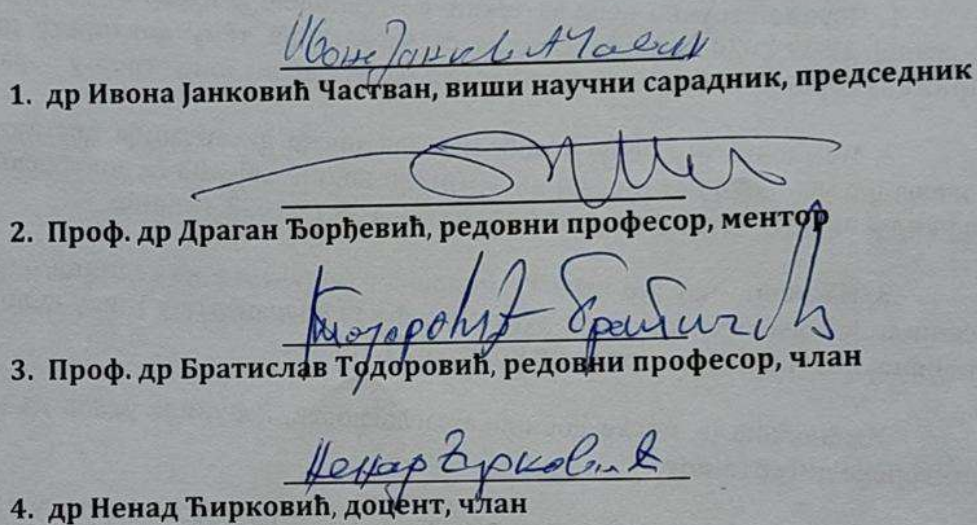 1. др Ивона Јанковић Частван, виши научни сарадник, председник
2. Проф. др Драган Ђорђевић, редовни професор, ментор
Тодоровић Братислав
3. Проф. др Братислав Тодоровић, редовни професор, члан
Ненад Ћирковић
4. др Ненад Ћирковић, доцент, члан